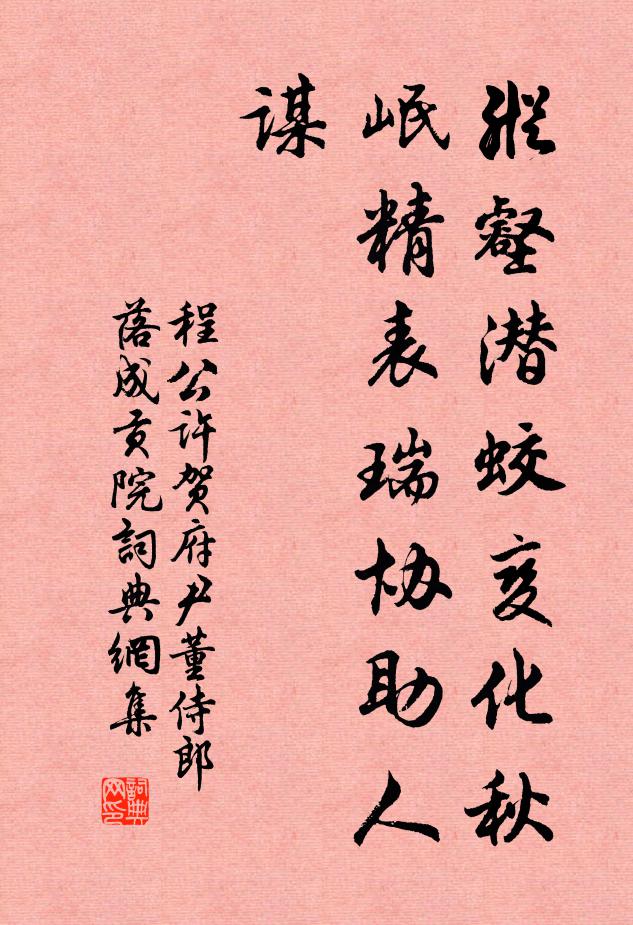 纵壑潜蛟变化秋
岷精表瑞协助人
谋
程公许贺府尹董侍郎
落成贡院詞典網集
詞典
网印